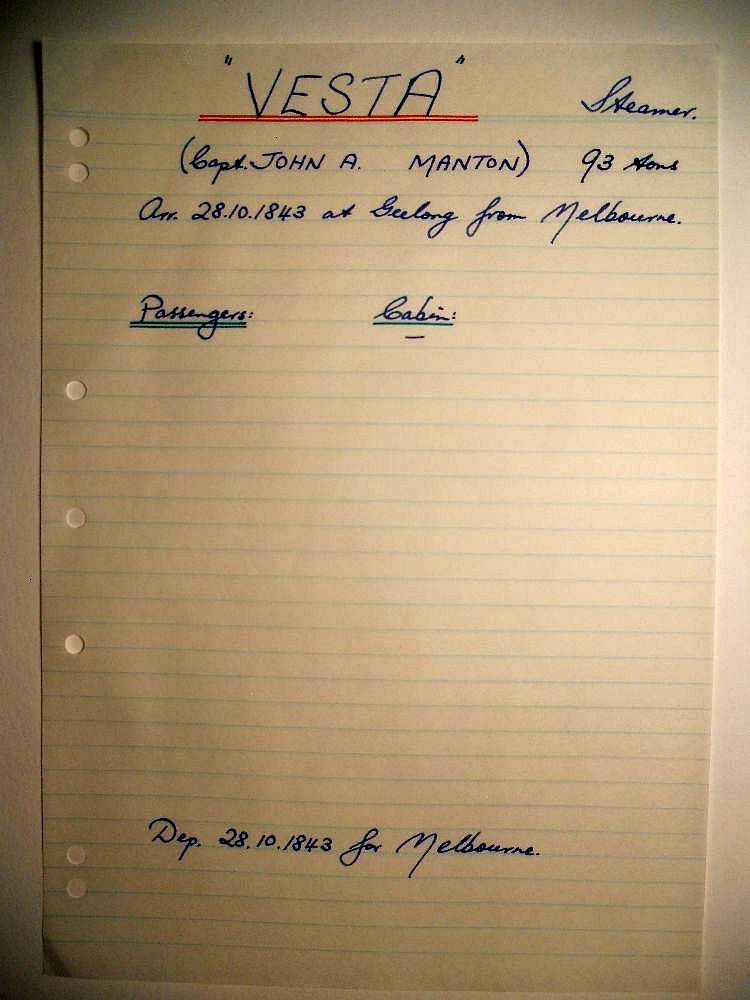 "VESTA" Steamer.
(Capt. JOHN A. MANTON) 93 tons
Arr. 28.10.1843 at Geelong from Melbourne.
Passengers: Cabin:
—
Dep. 28.10.1843 for Melbourne.